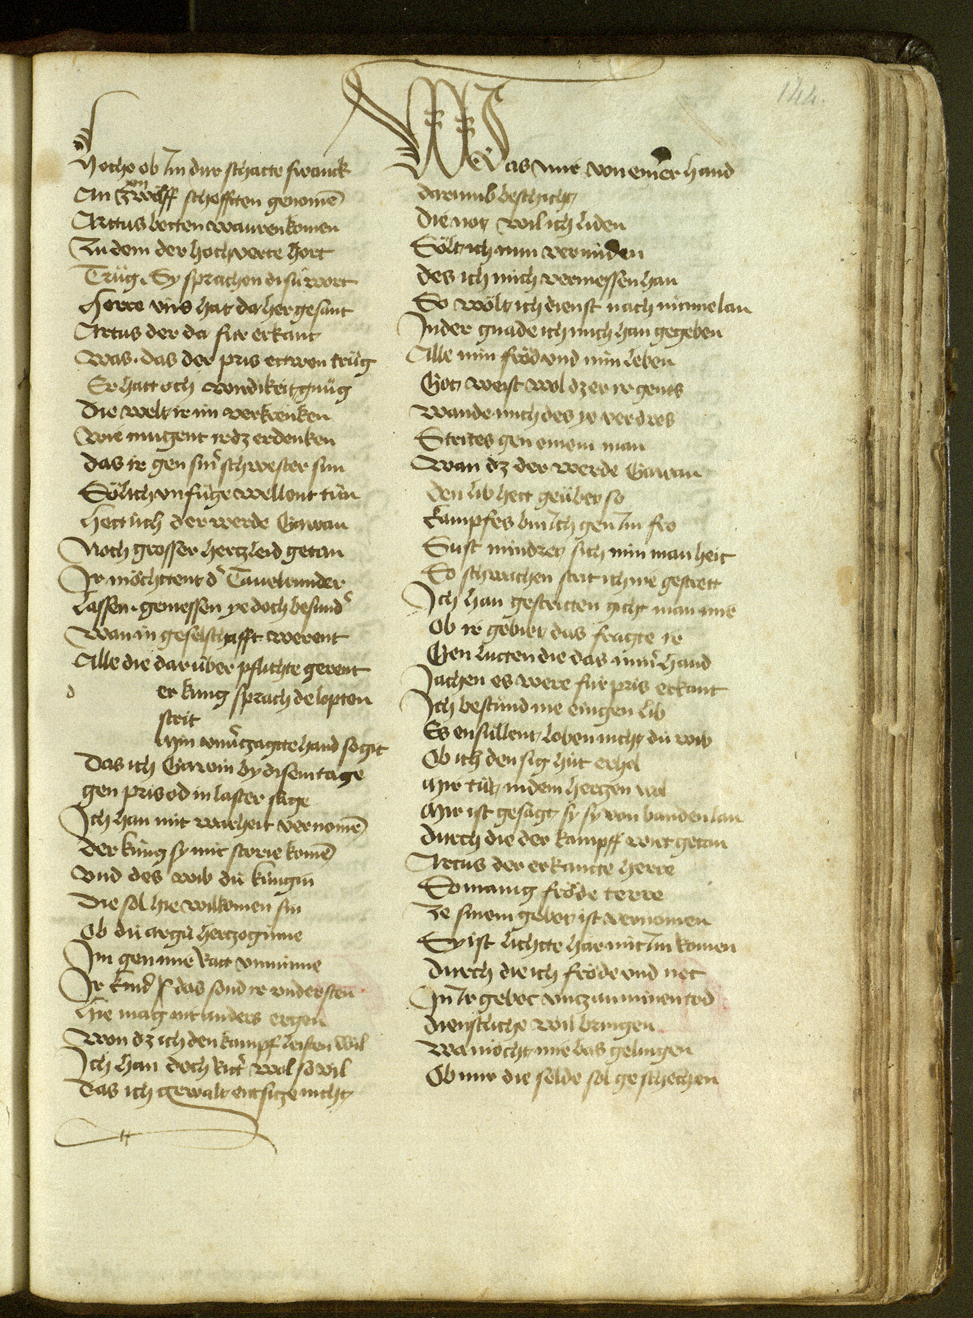 144.
Hoche ob Im dur schatte swanck
An zwelff schefften genomē
Artus betten warren komen
Zu dem der hochverte hort
Trůg. Sy sprachen disů wort
Herre vns hat da her gesant
Artus der da fur erkant
Was. das der pris ettwen trůg
Er hatt och wirdikeit gnůg
Die welt ir im verkrenken
Wie mugent ir dz erdenken
das ir gen sinr schwester sun
Sőlich vnfůge wellent tůn
Hett ůch der werde Gawan
Noch grosser hertzleid getan
Ir mőchttent dr Tauelrunder
Lassen geniessen ye doch besundr
Wan in geselschafft werent
Alle die dar ůber pflichte gerent
d er kung sprach de lopten
strit
Min vnuerzagtte hand so git
Das ich Gawin by disem tage
gen pris od in laster slage
Ich han mit warheit vernomē
Der kůng sy mit storie komē
Vnd des wib dů kůngin
Die sol hie wilkomen sin
Ob dů argů hertzoginne
Im gen mir ratt vnminne
Ir kind das sond ir vndersten
Hie mag nit anders ergen
Won dz ich den kampf leisten wil
Ich han doch ritr wol so vil
Das ich gewalt entsitze nicht
Was mir von einer hand
darumb beschicht
Die not wil ich liden
Sőlt ich nun vermiden
des ich mich vermessen han
So wőlt ich dienst nach minne lan
In der gnade ich mich han gegeben
Alle min frőd vnd min leben
Got weist wol dz er ir genos
Wande mich des ye verdros
Strites gen einem man
Wan dz der werde Gawan
den lib hett geůber so
Kampfes bin Ich gen Im fro
Sust mindret sich min manheit
So schwachen strit ich nie gestreit
Ich han gestritten gicht man mir
Ob ir gebiet das fragte ir
Gen lutten die das minr hand
Iachen es were fur pris erkant
Ich bestůnd nie eingen lib
Es ensůllent loben nicht dů wib
Ob ich den sig hůt erhol
Mir tůt in dem hertzen wol
Mir ist gesagt sy sy von banden lan
Durch die der kampff wirt getan
Artus der erkantte herre
So manig frőde terre
Ze sinem gebot ist vernomen
Sy ist lichtte har mit Im komen
Durch die ich frőde vnd not
In Ir gebot vntz an minen tod
dienstliche wil bringen
Wa mőcht mir bas gelingen
Ob mir die selde sol geschechen